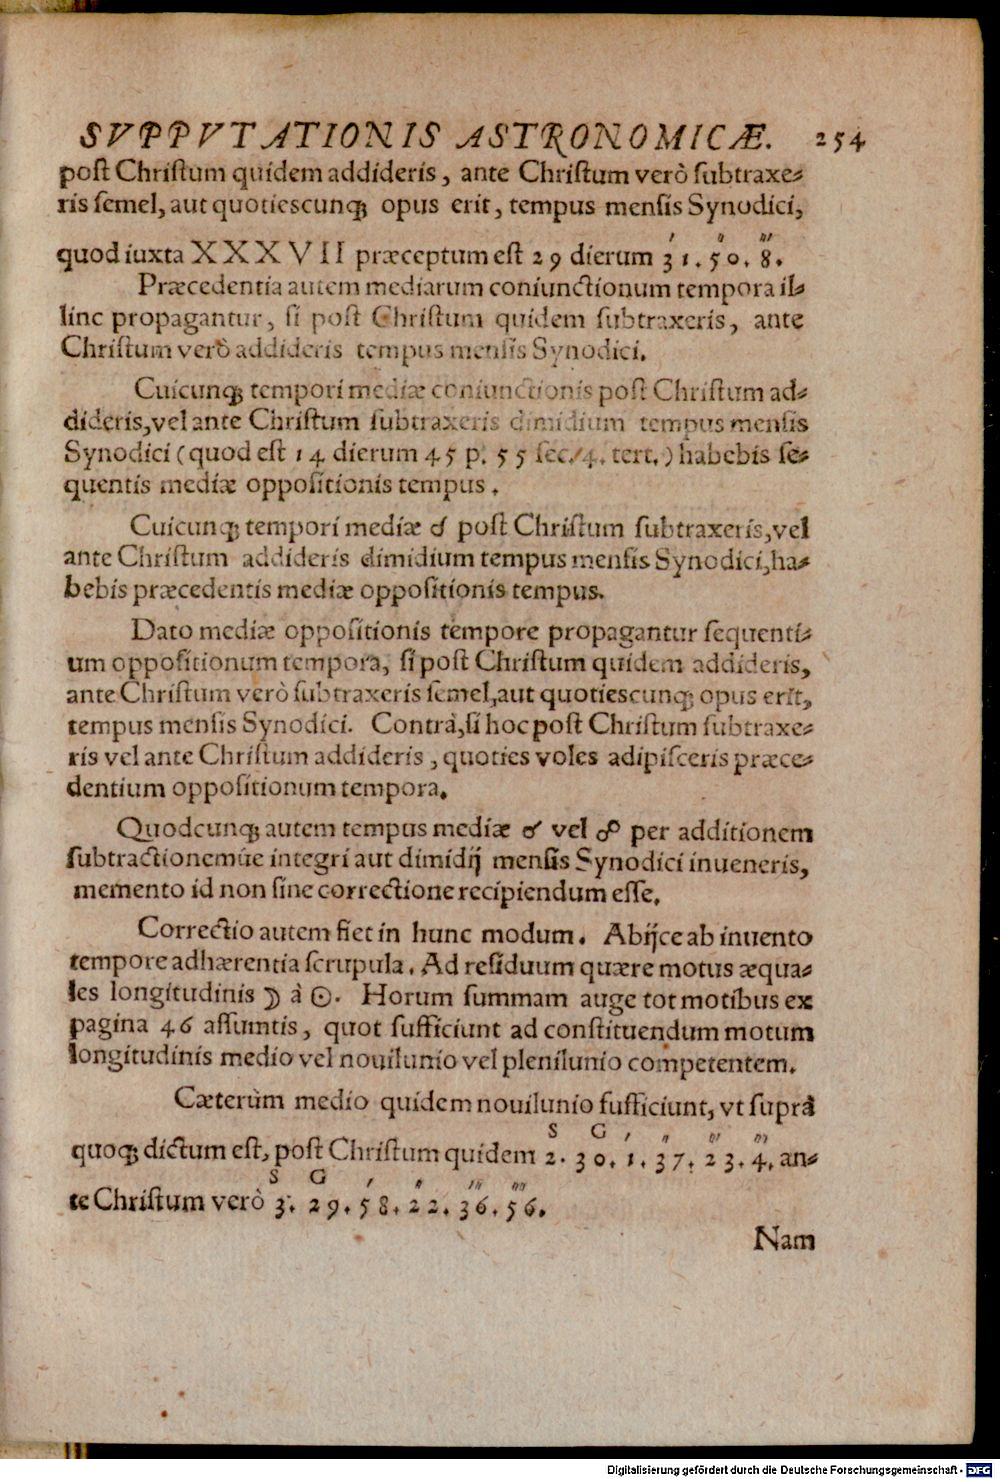 SVPPVTATIONIS ASTRONOMICÆ. 254
poſt Chriſtum quidem addideris, ante Chriſtum verò ſubtraxe⸗
ris ſemel, aut quotieſcunq; opus erit, tempus menſis Synodici,
′ ″ ‴
quod iuxta XXXVII præceptum eſt 29 dierum 31. 50. 8.
Præcedentia autem mediarum coniunctionum tempora il⸗
linc propagantur, ſi poſt Chriſtum quidem ſubtraxeris, ante
Chriſtum verò addideris tempus menſis Synodici.
Cuicunq; tempori mediæ coniunctionis poſt Chriſtum ad⸗
dideris, vel ante Chriſtum ſubtraxeris dimidium tempus menſis
Synodici (quod eſt 14 dierum 45 p. 55 ſec. 4. tert.) habebis ſe⸗
quentis mediæ oppoſitionis tempus.
Cuicunq; tempori mediæ ☌ poſt Chriſtum ſubtraxeris, vel
ante Chriſtum addideris dimidium tempus menſis Synodici, ha⸗
bebis præcedentis mediæ oppoſitionis tempus.
Dato mediæ oppoſitionis tempore propagantur ſequenti⸗
um oppoſitionum tempora, ſi poſt Chriſtum quidem addideris,
ante Chriſtum verò ſubtraxeris ſemel, aut quotieſcunq; opus erit,
tempus menſis Synodici. Contrà, ſi hoc poſt Chriſtum ſubtraxe⸗
ris vel ante Chriſtum addideris, quoties voles adipiſceris præce⸗
dentium oppoſitionum tempora.
Quodcunq; autem tempus mediæ ☌ vel ☍ per additionem
ſubtractionemúe integri aut dimidij menſis Synodici inueneris,
memento id non ſine correctione recipiendum eſſe.
Correctio autem fiet in hunc modum. Abijce ab inuento
tempore adhærentia ſcrupula. Ad reſiduum quære motus æqua⸗
les longitudinis ☽ à ☉. Horum ſummam auge tot motibus ex
pagina 46 aſſumtis, quot ſufficiunt ad conſtituendum motum
longitudinis medio vel nouilunio vel plenilunio competentem.
Cæterùm medio quidem nouilunio ſufficiunt, vt ſuprà
S G ′ ″ ‴ ⁗
quoq; dictum eſt, poſt Chriſtum quidem 2. 30. 1. 37. 23. 4. an⸗
S G ′ ″ ‴ ⁗
te Chriſtum verò 3. 29. 58. 22. 36. 56.
Nam
Digitalisierung gefördert durch die Deutsche Forschungsgemeinschaft - DFG